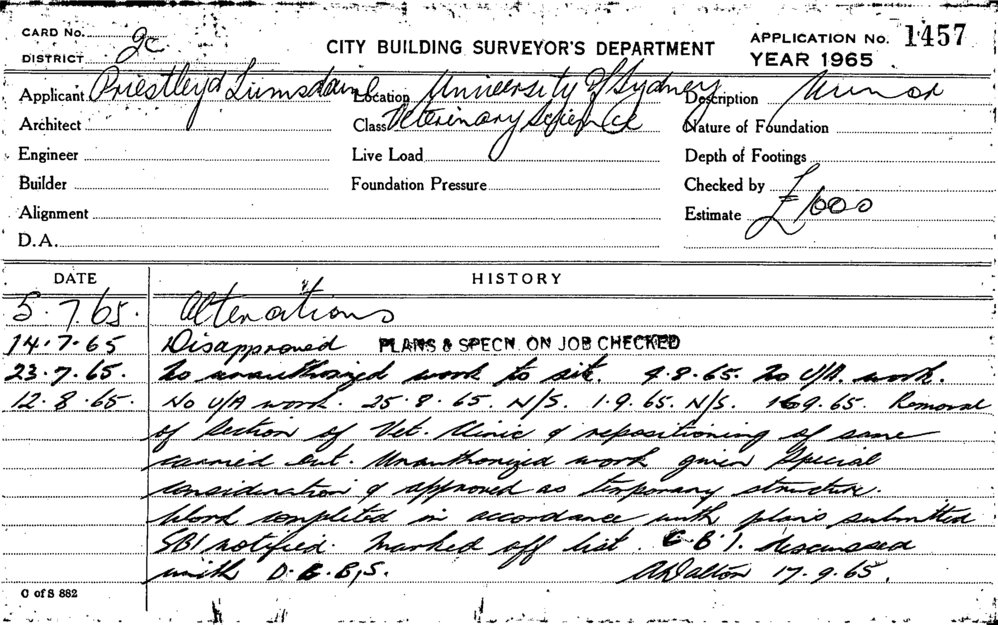 CARD No.
DISTRICT 2c
CITY BUILDING SURVEYOR'S DEPARTMENT
APPLICATION No. 1457
YEAR 1965
Applicant Priestley & Lumsdaine Location University of Sydney Description Minor
Architect Class Veterinary Science Nature of Foundation
Engineer Live Load Depth of Footings
Builder Foundation Pressure Checked by
Alignment Estimate £1000
D.A.
DATE HISTORY
5.7.65. Alterations
14.7.65 Disapproved PLANS & SPECN. ON JOB CHECKED
23.7.65. No unauthorized work to site. 4.8.65. No U/A. work.
12.8.65. No U/A work. 25.8.65. N/S. 1.9.65. N/S. 169.65. Removal
of Section of Vet. Clinic & repositioning of same
carried out. Unauthorized work given Special
consideration & approved as temporary structure.
Work completed in accordance with plans submitted
SBI notified. Marked off list. C.B.I. discussed
with D.C.B.S. 17.9.65.
C of S 882